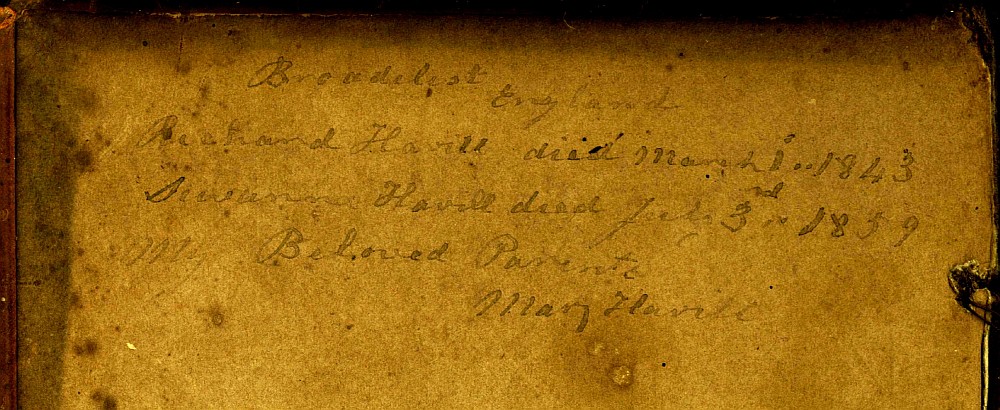 Broadclist
England
Richard Havill died March 1st 1843
Suusanna Havill died July 3rd 1859
My Beloved Parents
Mary Havill